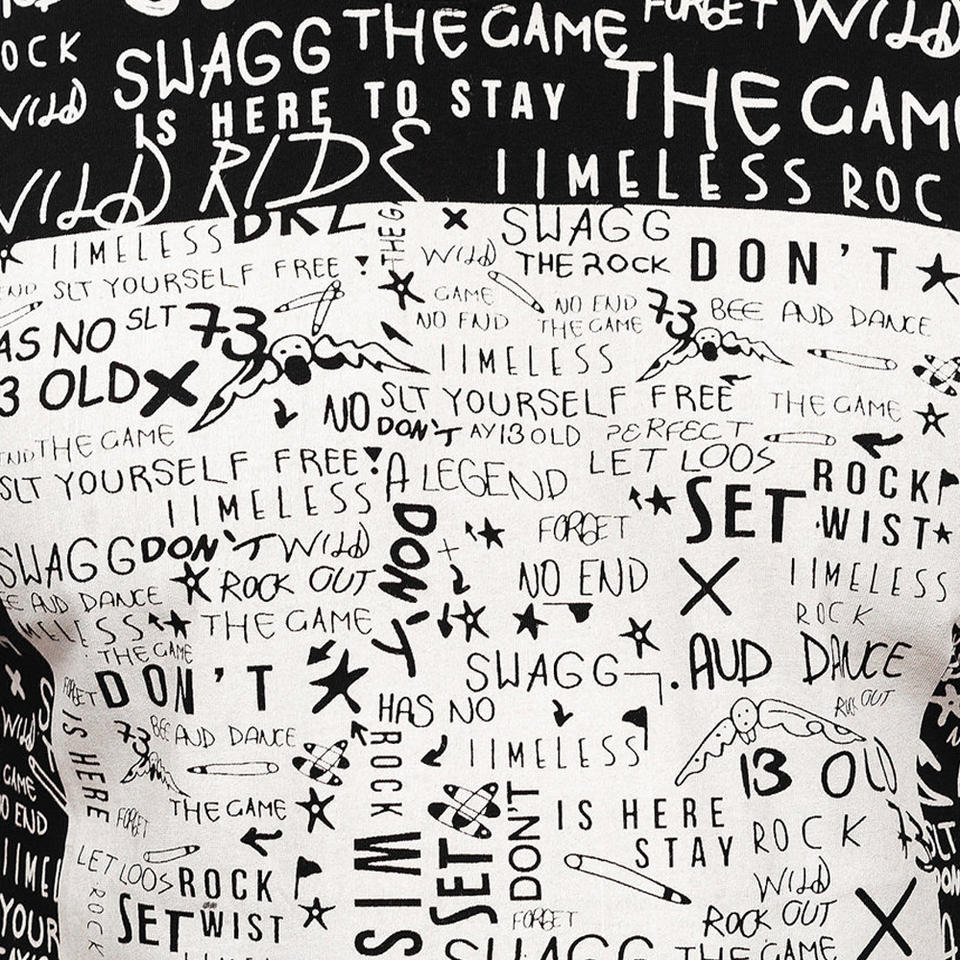 OCK SWAGG THE GAME FORGET WILD
WILD IS HERE TO STAY THE GAM
WILD RIDE IIMELESS ROC
IIMELESS DRZ THEG SWAGG
END SLT YOURSELF FREE WILD THE ROCK DON'T
GAME NO END 73 BEE AND DANCE
AS NO SLT 73 NO END THE GAME
3 OLD IIMELESS
NO SLT YOURSELF FREE THE GAME
END THE GAME DON'T AY13OLD PERFECT
SLT YOURSELF FREE A LEGEND LET LOOS ROCK
IIMELESS SET WIST
SWAGG DON'T WILD DON'T FORGET
E AND DANCE ROCK OUT NO END IIMELESS
MELESS THE GAME ROCK
THE GAME SWAGG AUD DANCE
FORGET DON'T HAS NO
IS HERE 73 BEE AND DANCE ROCK IIMELESS 13 OLD
WILD
GAME THE GAME DON'T IS HERE
NO END FORGET STAY ROCK
IIMEL LET LOOS ROCK WIS SET WILD
YOUR ROCK SET WIST FORGET ROCK OUT
SWAGG THE GAME